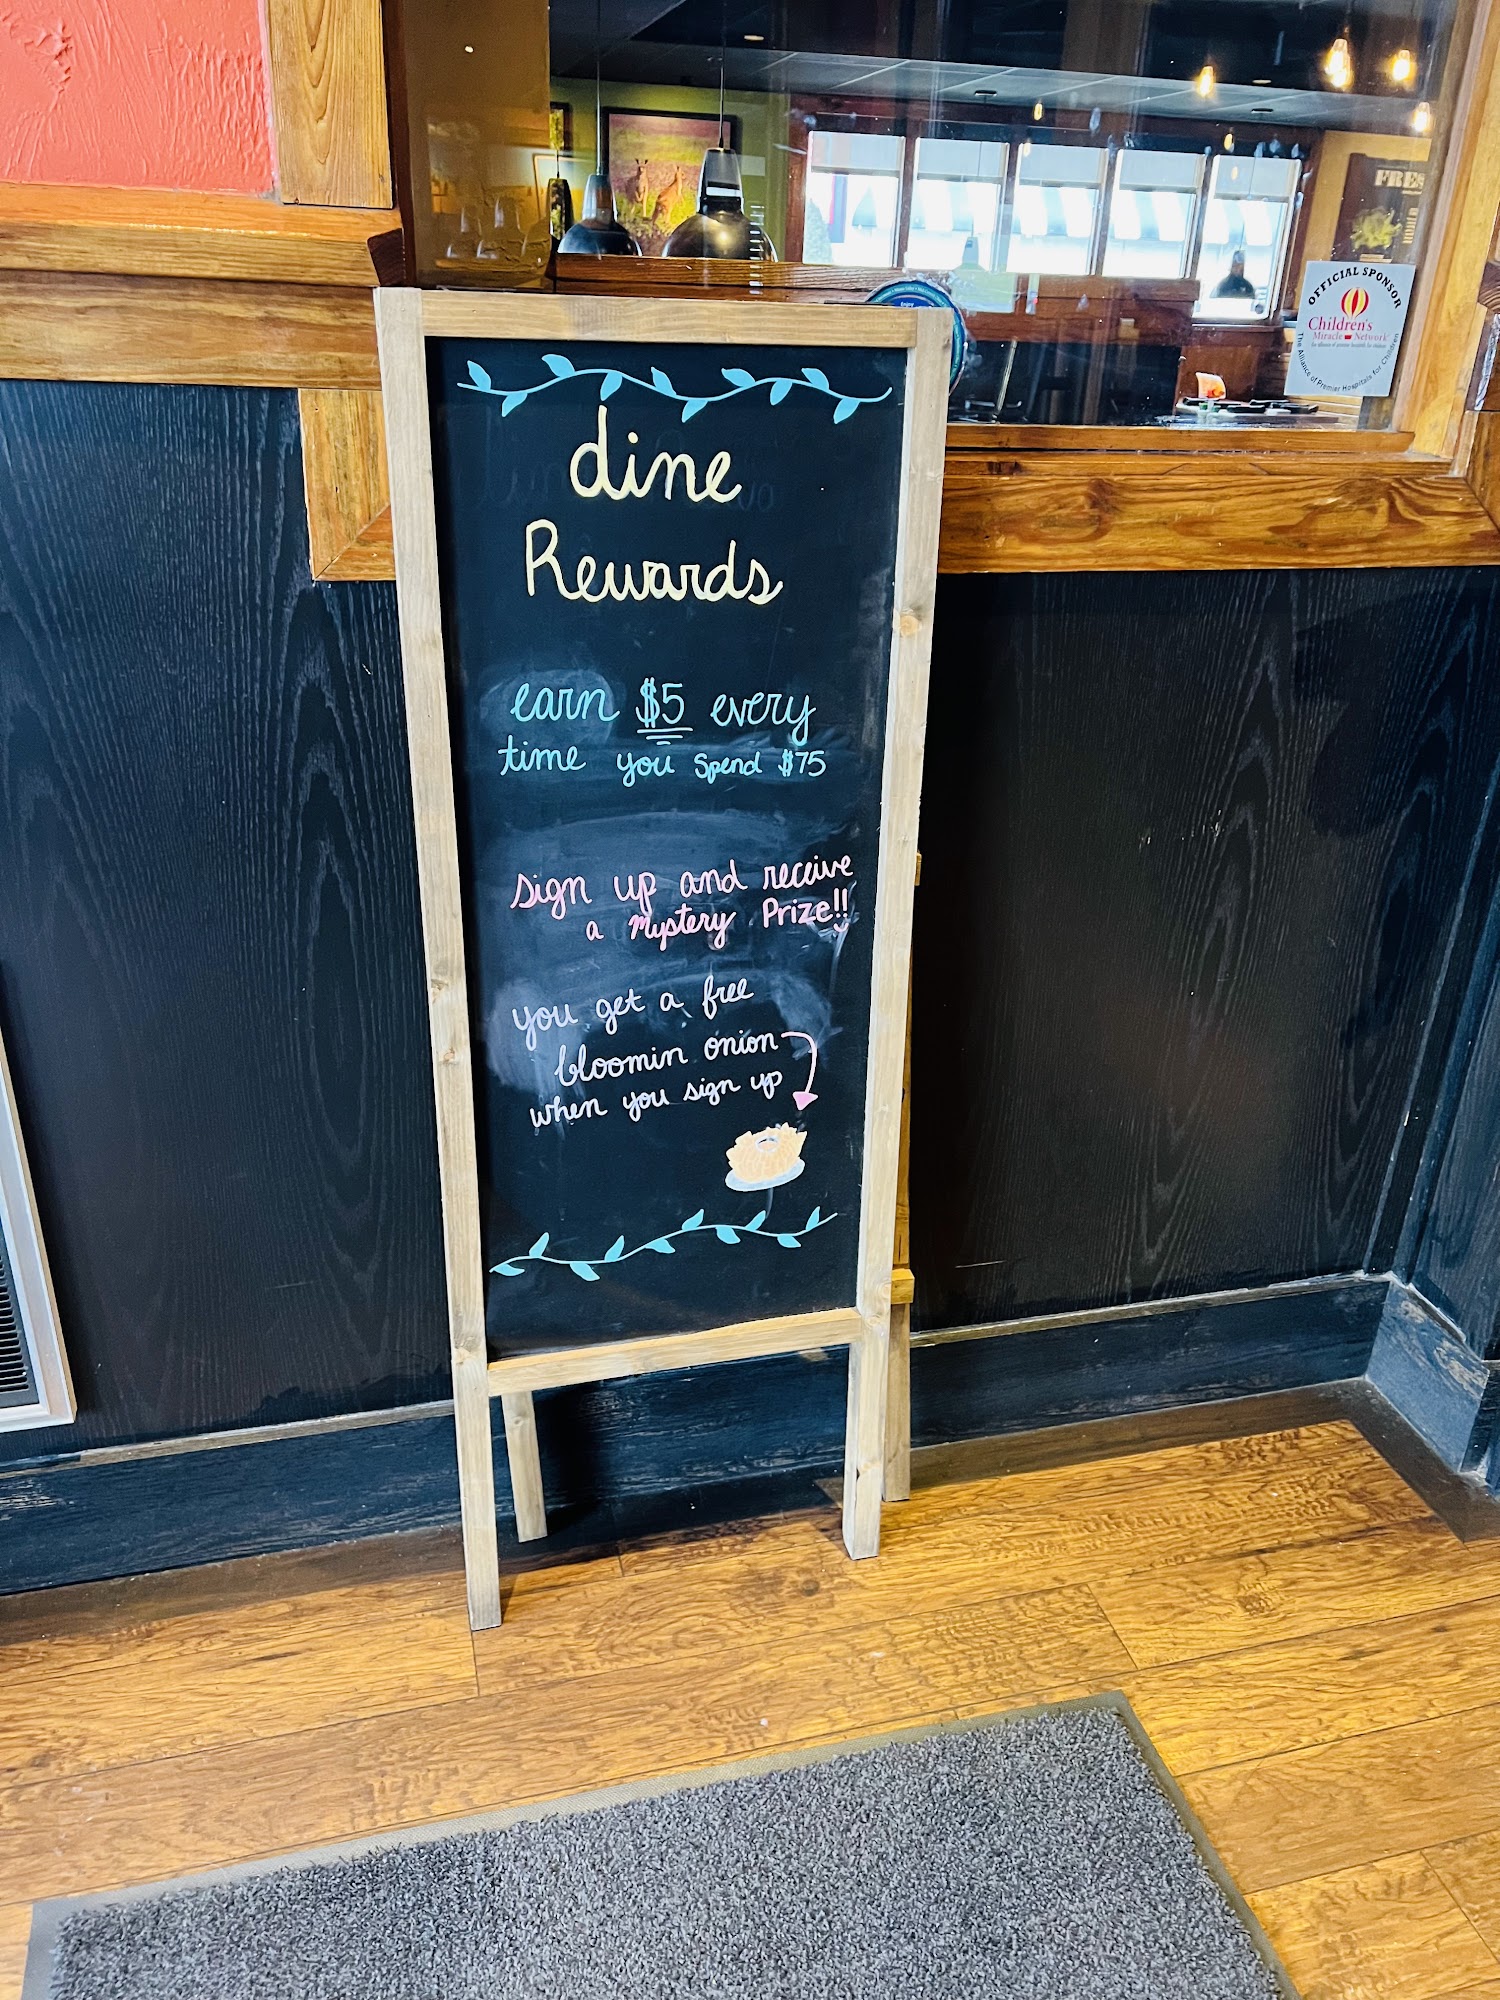 FRES
OFFICIAL SPONSOR
Children's
Miracle Network
The Alliance of Premier Hospitals for Children
Enjoy
dine
Rewards
earn $5 every
time you spend $75
sign up and receive
a mystery Prize!!
you get a free
bloomin onion
when you sign up